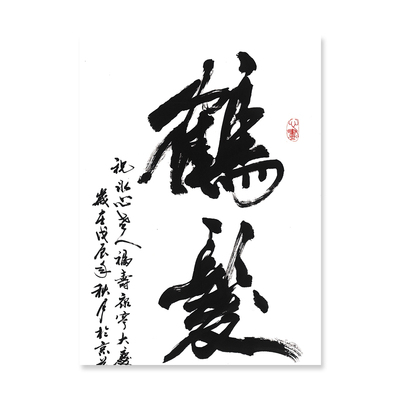 鶴髮
祝冰心老人福壽康寧大慶
歲在戊辰年秋月於京